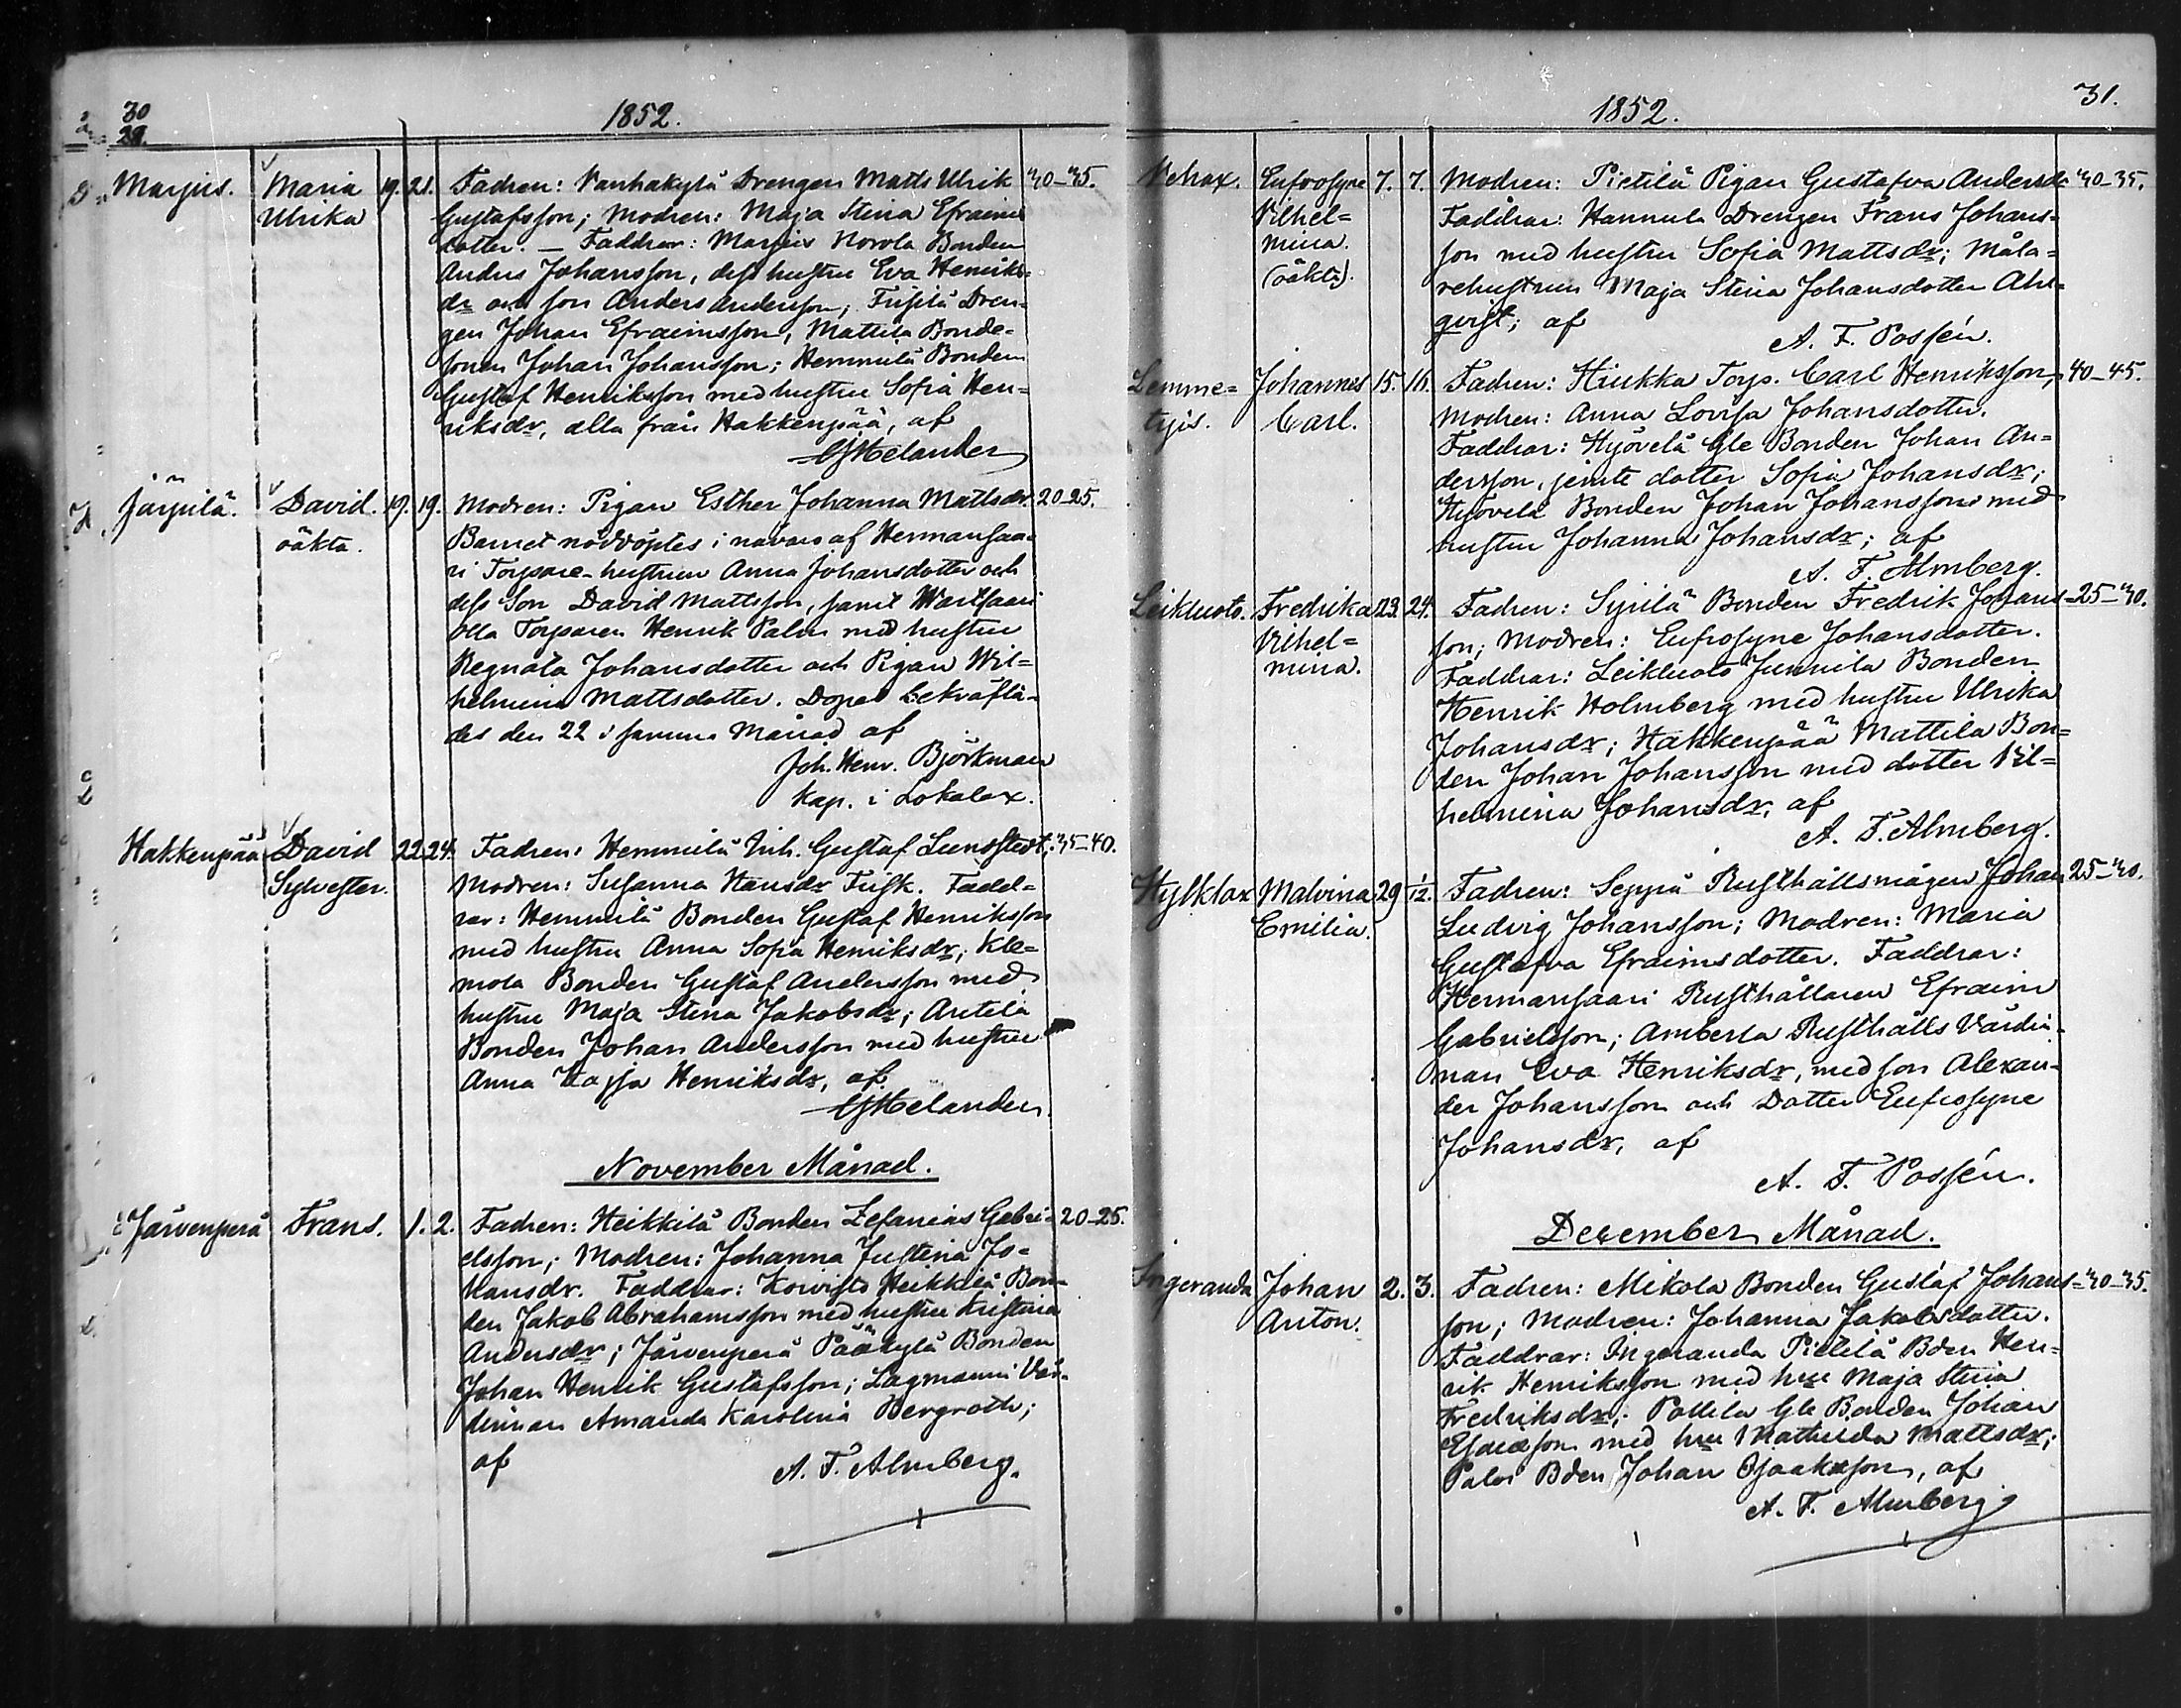 30
29.
1852.
Marjus. Maria 19. 21. Fadren: Vanhakylä Drengen Matts Ulrik 30-35.
Ulrika Gustafsson; Modren: Maja Stina Efraims
dotter. — Faddrar: Marjus Norola Bonden
Anders Johansson, dess hustru Eva Henriks-
dr och son Anders Andersson; Dren-
gen Johan Efraimsson, Mattila Bonde-
sonen Johan Johansson; Hemmilä Bonden
Gustaf Henriksson med hustru Sofia Hen=
riksdr, alla från Hakkenpää, af
Helander
Järpilä. David. 19. 19. Modren: Pigan Esther Johanna Mattsdr. 20-25.
oäkta. Barnet nöddöptes i närvaro af Hermansaa-
ri Torpare-hustrun Anna Johansdotter och
dess Son David Mattsson, samt Wartsaari
Olla Torparen Henrik Palm med hustru
Regnata Johansdotter och Pigan Wil=
helmina Mattsdotter. Dopet bekräfta-
des den 22 i samma Månad af
Joh. Henr. Björkman
Kap. i Lokalax.
Hakkenpää David 22. 24. Fadren: Hemmilä Inh. Gustaf Lundstedt; 35-40.
Sylvester. Modren: Susanna Hansdr Fisk. Fadd=
rar: Hemmilä Bonden Gustaf Henriksson
med hustru Anna Sofia Henriksdr; Kle=
mola Bonden Gustaf Andersson med
hustru Maja Stina Jakobsdr; Antila
Bonden Johan Andersson med hustru
Anna Kajsa Henriksdr, af
Helander
November Månad.
Järvenperä Frans. 1. 2. Fadren: Heikkilä Bonden Zefanias Gabri- 20-25.
elsson; Modren: Johanna Justina Jo=
hansdr. Faddrar: Koivisto Heikkilä Bon-
den Jakob Abrahamsson med hustru Kristina
Andersdr; Järvenperä Pääkylä Bonden
Johan Henrik Gustafsson; Lagmanni Vär-
dinnan Amanda Karolina Bergroth;
af A. F. Almberg.
1852. 31.
Vehax. Eufrosyne 7. 7. Modren: Pietilä Pigan Gustafva Andersdr 30-35.
Vilhel= Faddrar: Hannula Drengen Frans Johans=
mina. son med hustru Sofia Mattsdr; Måla=
(oäkta). rehustrun Maja Stina Johansdotter Ahl=
qvist; af
A. F. Possén.
Lemme= Johannes 15. 16. Fadren: Hiukka Torp. Carl Henriksson; 40-45.
tyis. Carl. Modren: Anna Lovisa Johansdotter.
Faddrar: Hyövelä Gle Bonden Johan An=
dersson, jemte dotter Sofia Johansdr;
Hyövelä Bonden Johan Johansson med
hustru Johanna Johansdr; af
A. F. Almberg.
Leikluoto. Fredrika 23. 24. Fadren: Sipilä Bonden Fredrik Johans= 25-30.
Vilhel= son; Modren: Eufrosyne Johansdotter.
mina. Faddrar: Leikluoto Junnila Bonden
Henrik Holmberg med hustru Ulrika
Johansdr; Hakkenpää Mattila Bon=
den Johan Johansson med dotter Vil=
helmina Johansdr, af
A. F. Almberg.
Hylklax Malvina 29 1/12. Fadren: Seppä Rusthållsmågen Johan 25-30.
Emilia. Ludvig Johansson; Modren: Maria
Gustafva Efraimsdotter. Faddrar:
Hermansaari Rusthållaren Efraim
Gabrielsson; Amberla Rusthålls Värdin-
nan Eva Henriksdr, med son Alexan-
der Johansson och Dotter Eufrosyne
Johansdr, af
A. F. Possén.
December Månad.
Ingeranda Johan 2. 3. Fadren: Mikola Bonden Gustaf Johans= 30-35.
Anton. son; Modren: Johanna Jakobsdotter.
Faddrar: Ingeranda Pietilä Bden Hen=
rik Henriksson med hru Maja Stina
Fredriksdr; Pollela Gle Bonden Johan
Esaiasson med hru Mathilda Mattsdr;
Palo Bden Johan Isaaksson, af
A. F. Almberg